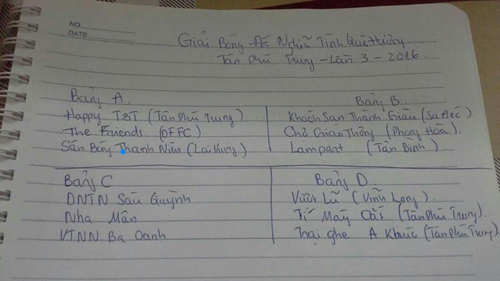 NO.
DATE
Giải Bóng Đá Nghĩa Tình Quê Hương
Tân Phú Trung - Lần 3 - 2016.
Bảng A
Happy T&T (Tân Phú Trung)
The Friends (OFFC)
Sân Bóng Thanh Niên (Lai Vung)
Bảng B
Khách Sạn Thanh (Sa Đéc)
Chở Giao Thông (Phong Hòa).
Lampart (Tân Bình)
Bảng C
DNTN Sáu Quỳnh
Nha Mân
VTNN Ba Oanh
Bảng D
Vượt Lũ (Vĩnh Long)
Tí Máy Cắt (Tân Phú Trung).
Trại ghe A Khuê (Tân Phú Trung)